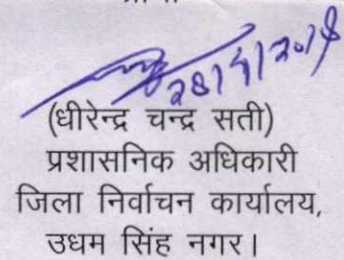 (धीरेन्द्र चन्द्र सती)
प्रशासनिक अधिकारी
जिला निर्वाचन कार्यालय,
उधम सिंह नगर।